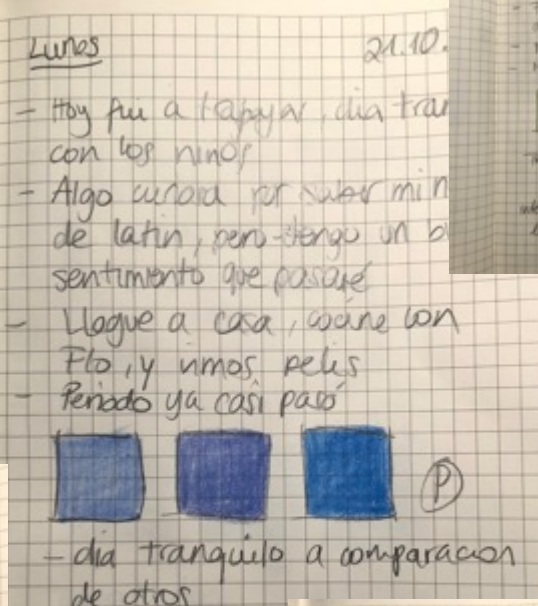 Lunes 21.10.
- Hoy fui a , dia
con los niños
- Algo por saber
de latin, pero tengo un
sentimiento que pasaré
- Llegue a casa, cocine con
Flo, y vimos pelis
- Periodo ya casi pasó
P
- dia tranquilo a comparacion
de otros